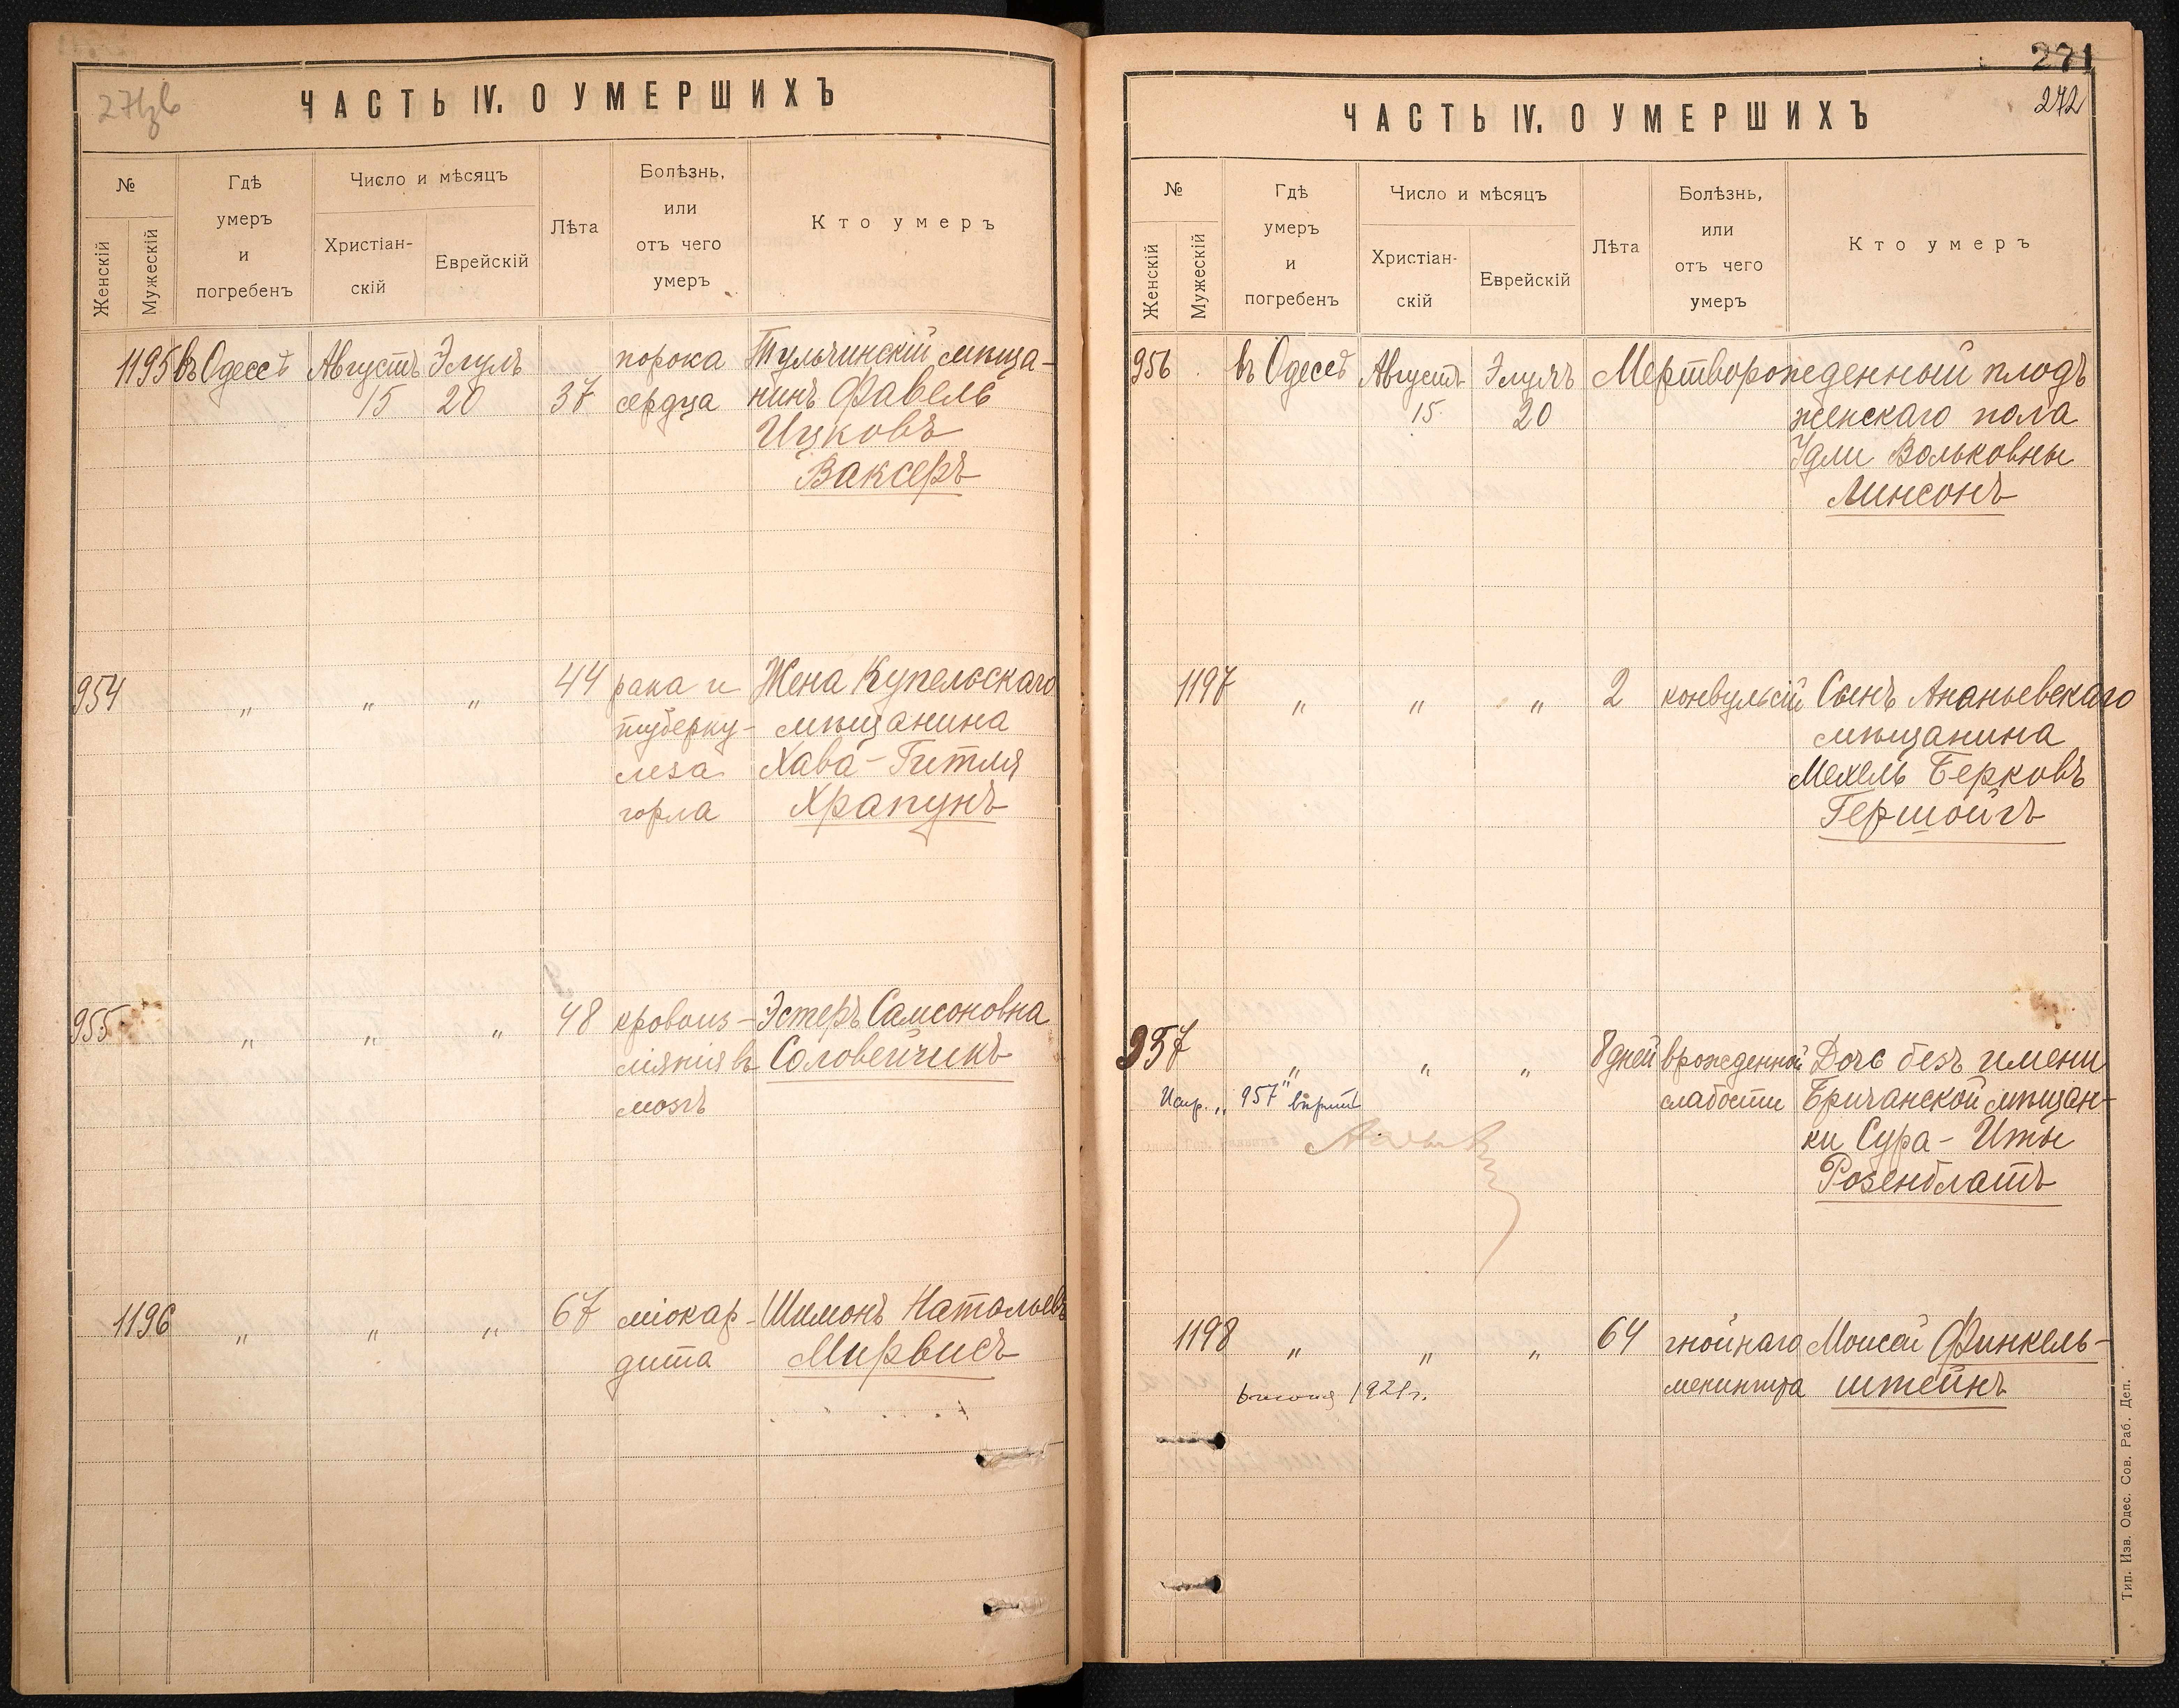 ЧАСТЬ IV. О УМЕРШИХЪ
№
Женскій
Мужескій
Гдѣ
умеръ
и
погребенъ
Число и мѣсяцъ
Христіан-
скій
Еврейскій
Лѣта
Болѣзнь,
или
отъ чего
умеръ
Кто умеръ
1195 въ Одессѣ Августъ Элуль порока Тульчинскій мѣща-
15 20 37 сердца нинъ Файвель
Ицковъ
Ваксеръ
954 „ „ „ 44 рака и Жена Купельскаго
туберку- мѣщанина
леза Хава-Гитля
горла Храпунъ
955 „ „ „ 48 кровоиз- Эстеръ Самсоновна
ліянія въ Соловейчикъ
мозгъ
1196 „ „ „ 67 міокар- Шимонъ Натальевъ
дита Мирвисъ
271
272
ЧАСТЬ IV. О УМЕРШИХЪ
№
Женскій
Мужескій
Гдѣ
умеръ
и
погребенъ
Число и мѣсяцъ
Христіан-
скій
Еврейскій
Лѣта
Болѣзнь,
или
отъ чего
умеръ
Кто умеръ
956 въ Одессѣ Августъ Элулъ Мертворожденный плодъ
15 20 женскаго пола
Удли Вольковны
Линсонъ
1197 „ „ „ 2 конвульсій Сынъ Ананьевскаго
мѣщанина
Мехель Берковъ
Гершойгъ
957 „ „ „ 8 дней врожденной Дочь безъ имени
Испр. „957" вѣрить слабости Бричанской мѣщан-
ки Сура-Иты
Розенблатъ
1198 „ „ „ 64 гнойнаго Моисей Финкель-
1921г. менингита штейнъ
Тип. Изв. Одес. Сов. Раб. Деп.